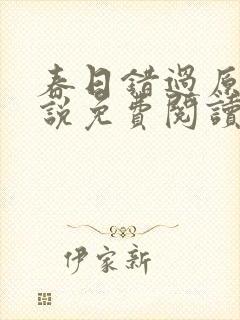 春日錯過原
說免費閱讀
伊家新